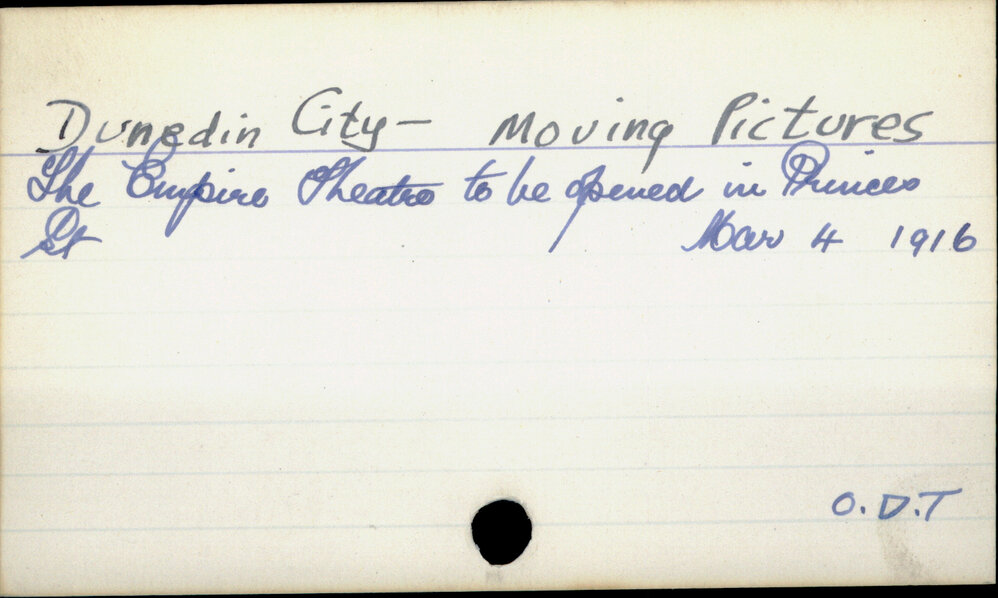 Dunedin City - Moving Pictures
The Empire Theatre to be opened in Princes
St Mar 4 1916
O.D.T